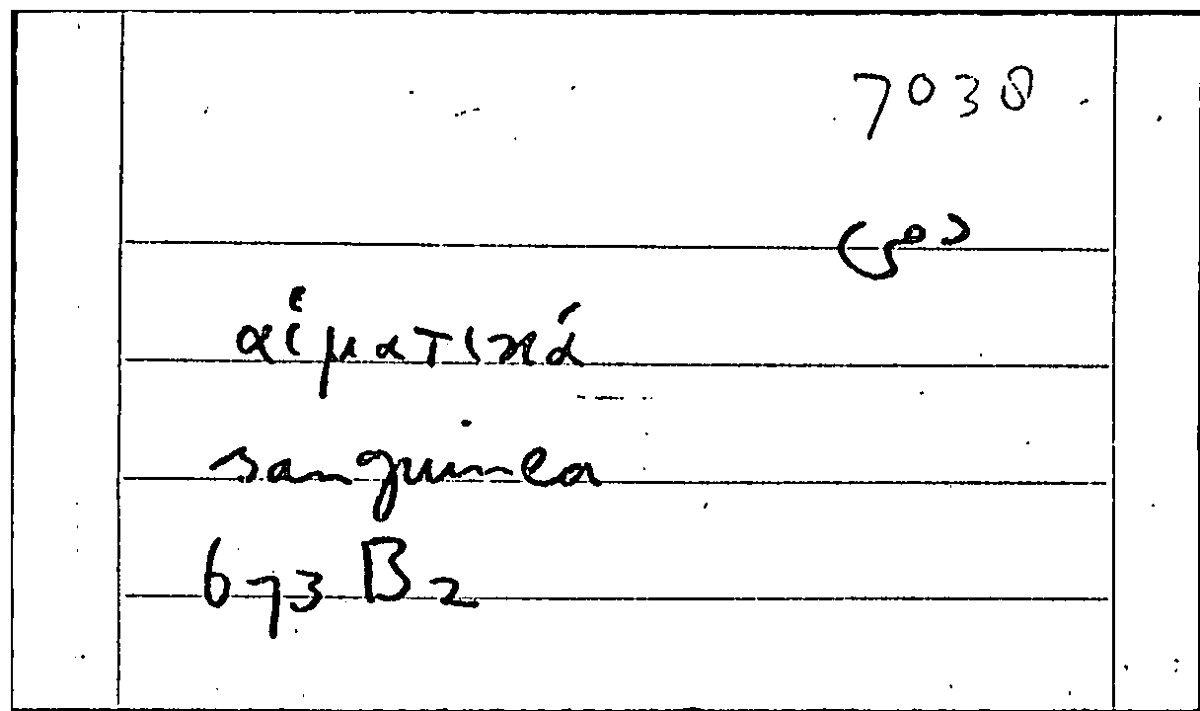 7038
αἱματικά
sanguinea
673 B2